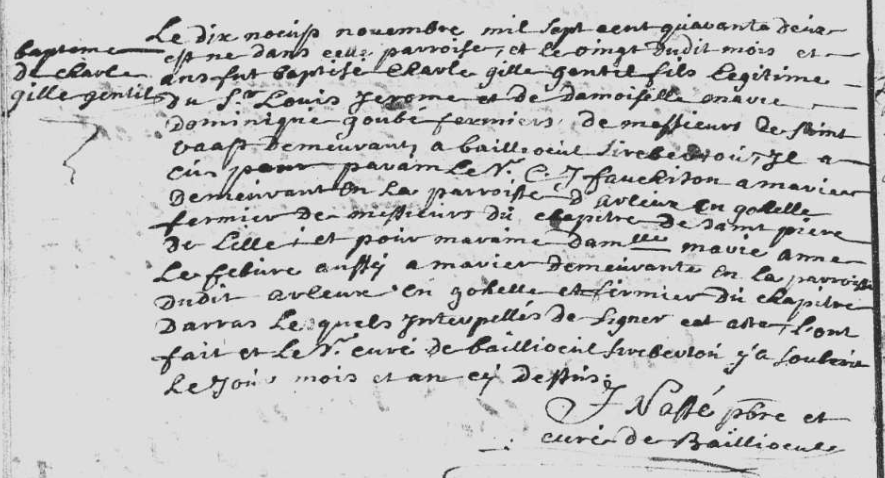 bapteme
de charle
gille gentil
Le dix noeuf novembre mil sept cent quarante deux
est né dans cette parroise, et le vingt dudit mois et
ans fut baptisé charle gille gentil fils legitime
du Sr Louis Jerome et de damoiselle marie
dominique goubé fermiers de messieurs de saint
vaast demeurant a baillioeul sirebertou, Il a
eu pour parain le Sr C. J. a marier
demeurant en la parroisse d'arleux en gohelle
fermier de messieurs du chapitre de saint piere
de Lille, et pour maraine damlle marie anne
Le febure aussy a marier demeurante en la parroisse
dudit arleux en gohelle et fermier du chapitre
darras lesquels interpellés de signer cet acte, l'ont
fait et le Sr curé de baillioeul sirebertou y a soubscrit
le jour mois et an cy dessus
J pbre et
curé de Baillioeule